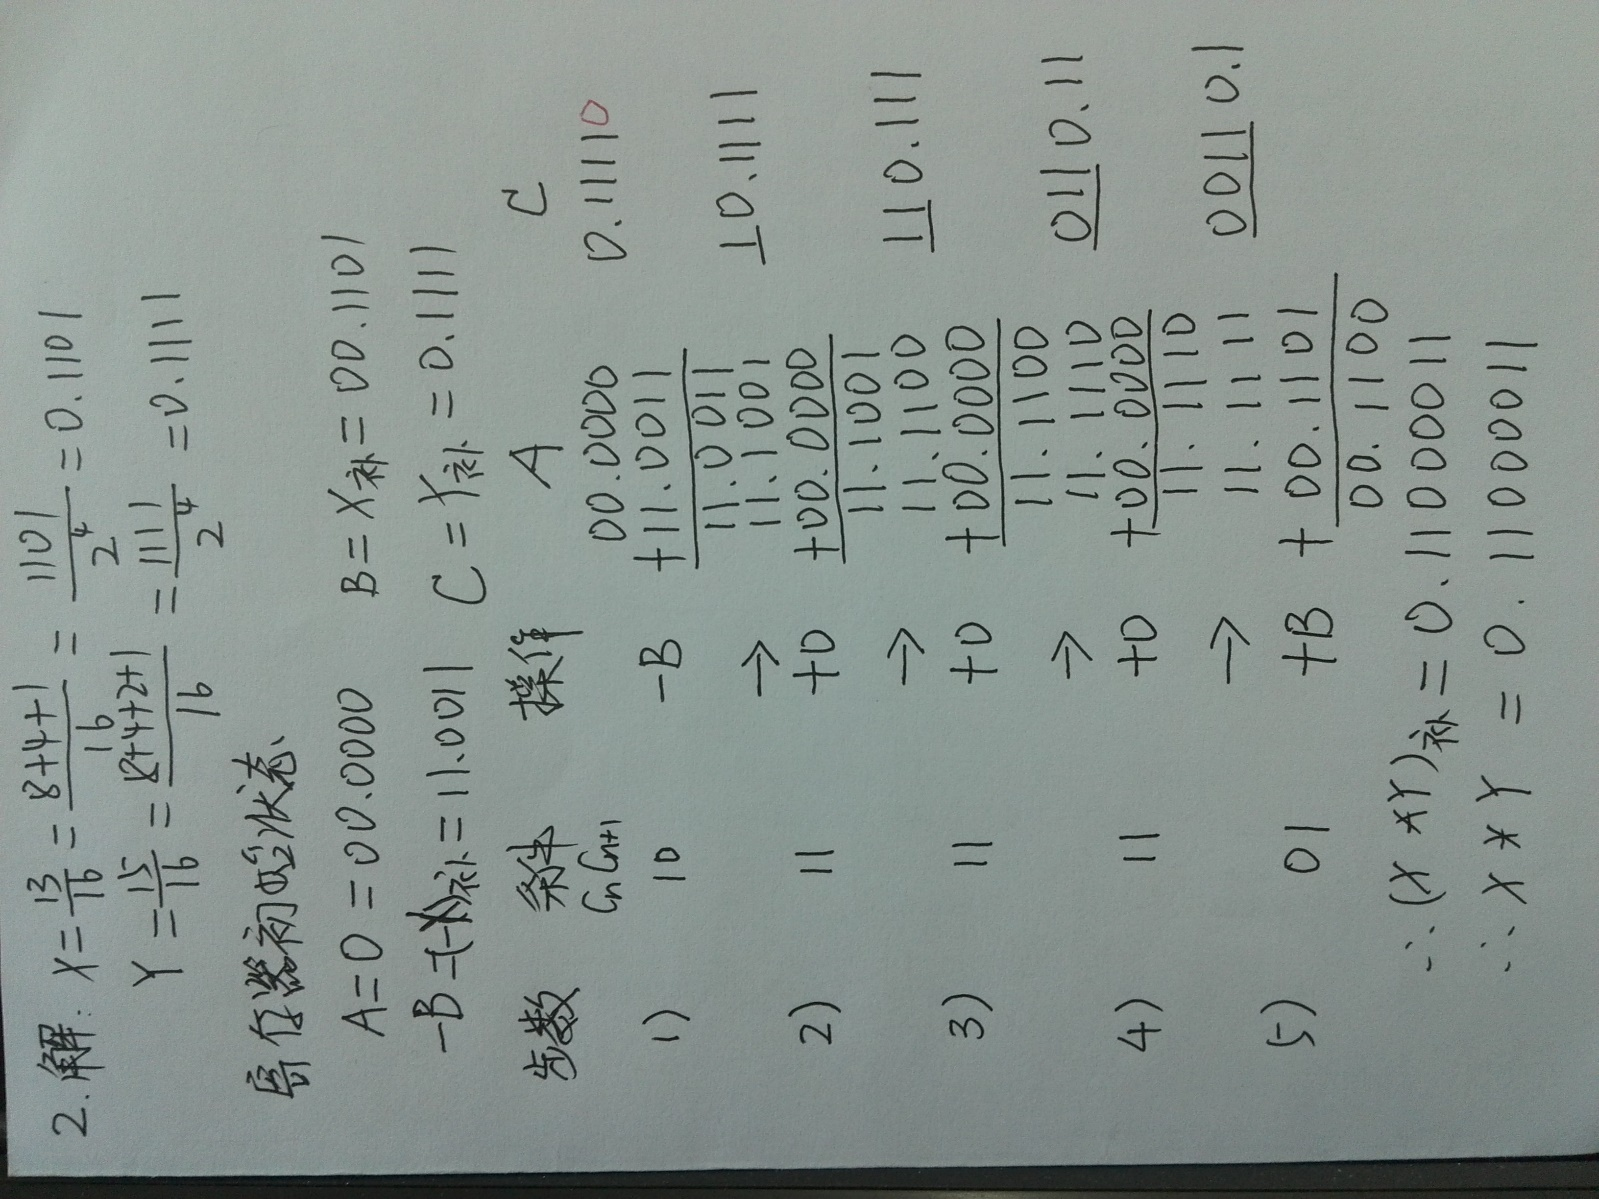 2.解: X = 13/16 = (8+4+1)/16 = 1101/2^4 = 0.1101
Y = 15/16 = (8+4+2+1)/16 = 1111/2^4 = 0.1111
寄存器初始状态、
A = 0 = 00.0000 B = X补 = 00.1101
-B =(-X)补 = 11.0011 C = Y补 = 0.1111
步数 条件 操作 A C
CnCn+1
00.0000 0.11110
1) 10 -B +11.0011
11.0011
→ 11.1001 10.1111
2) 11 +0 +00.0000
11.1001
→ 11.1100 110.111
3) 11 +0 +00.0000
11.1100
→ 11.1110 0110.11
4) 11 +0 +00.0000
11.1110
→ 11.1111 00110.1
5) 01 +B +00.1101
00.1100
∴(X*Y)补 = 0.11000011
∴ X*Y = 0.11000011